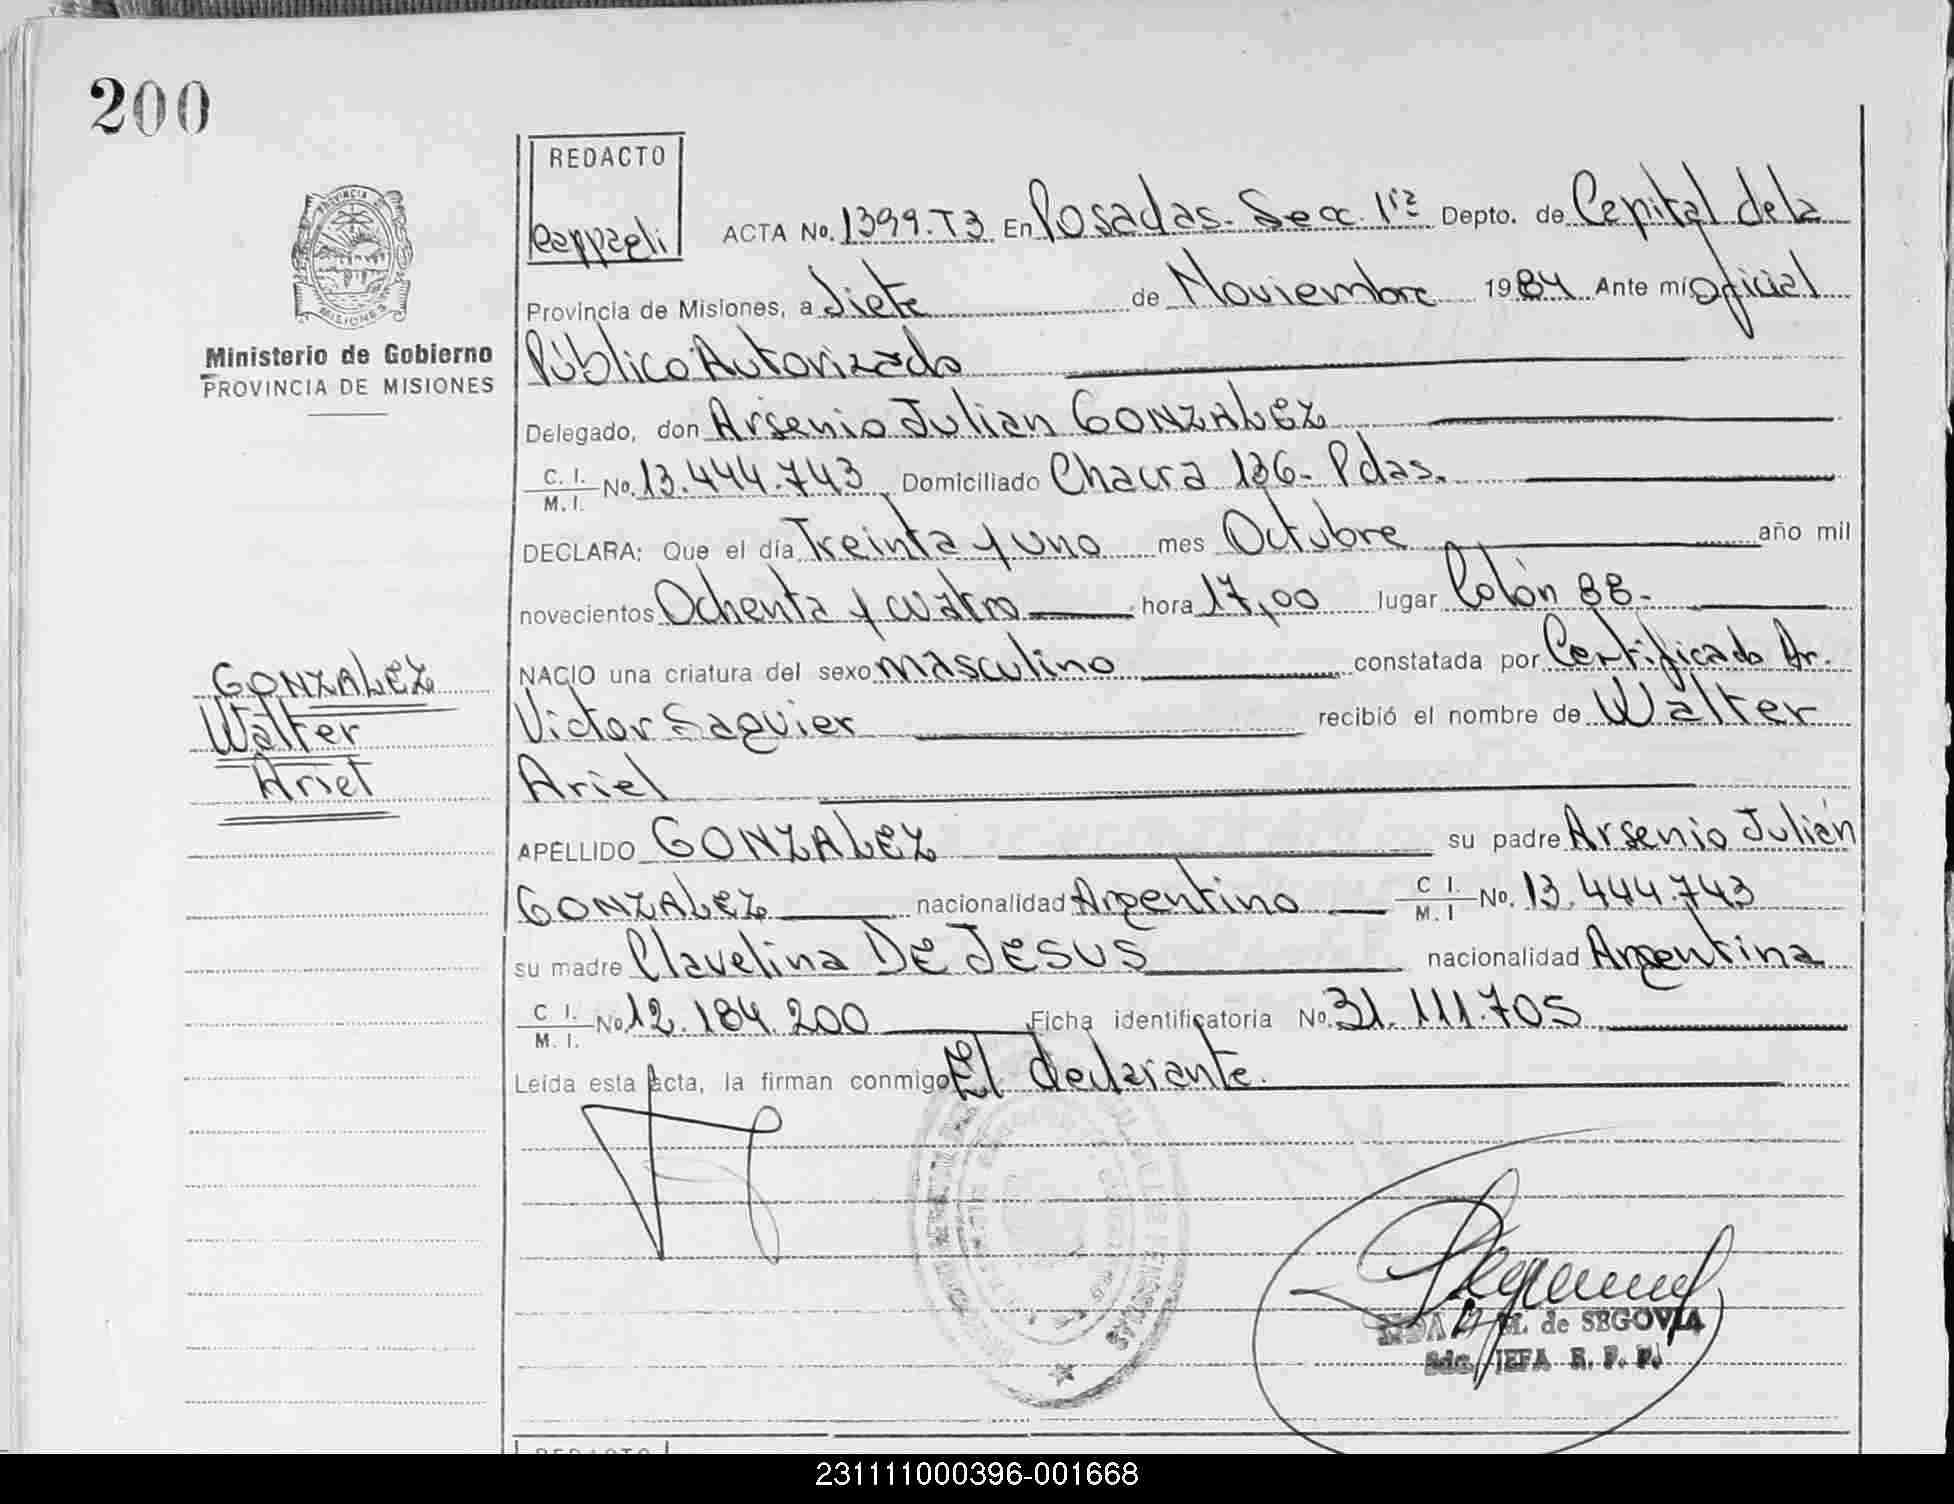 200
REDACTO
Cappagli
PROVINCIA DE
MISIONES
Ministerio de Gobierno
PROVINCIA DE MISIONES
ACTA No. 1399.T3 En Posadas. Secc. 1ra Depto. de Capital de la
Provincia de Misiones, a Siete de Noviembre 1984 Ante mí oficial
Público Autorizado
Delegado, don Arsenio Julian GONZALEZ
C. I. / M. I. No. 13.444.743 Domiciliado Chacra 136- Pdas.
DECLARA; Que el día Treinta y uno mes Octubre año mil
novecientos Ochenta y cuatro hora 17,00 lugar Colón 88-
NACIO una criatura del sexo masculino constatada por Certificado Dr.
Victor Saguier recibió el nombre de Walter
Ariel
GONZALEZ
Walter
Ariel
APELLIDO GONZALEZ su padre Arsenio Julián
GONZALEZ nacionalidad Argentino C I. / M. I No. 13.444.743
su madre Clavelina DE JESUS nacionalidad Argentina
C I. / M. I. No 12.184.200 Ficha identificatoria No. 31.111.705
Leída esta acta, la firman conmigo El declarante.
M. de SEGOVIA
JEFA R. P. P.
REDACTO
231111000396-001668